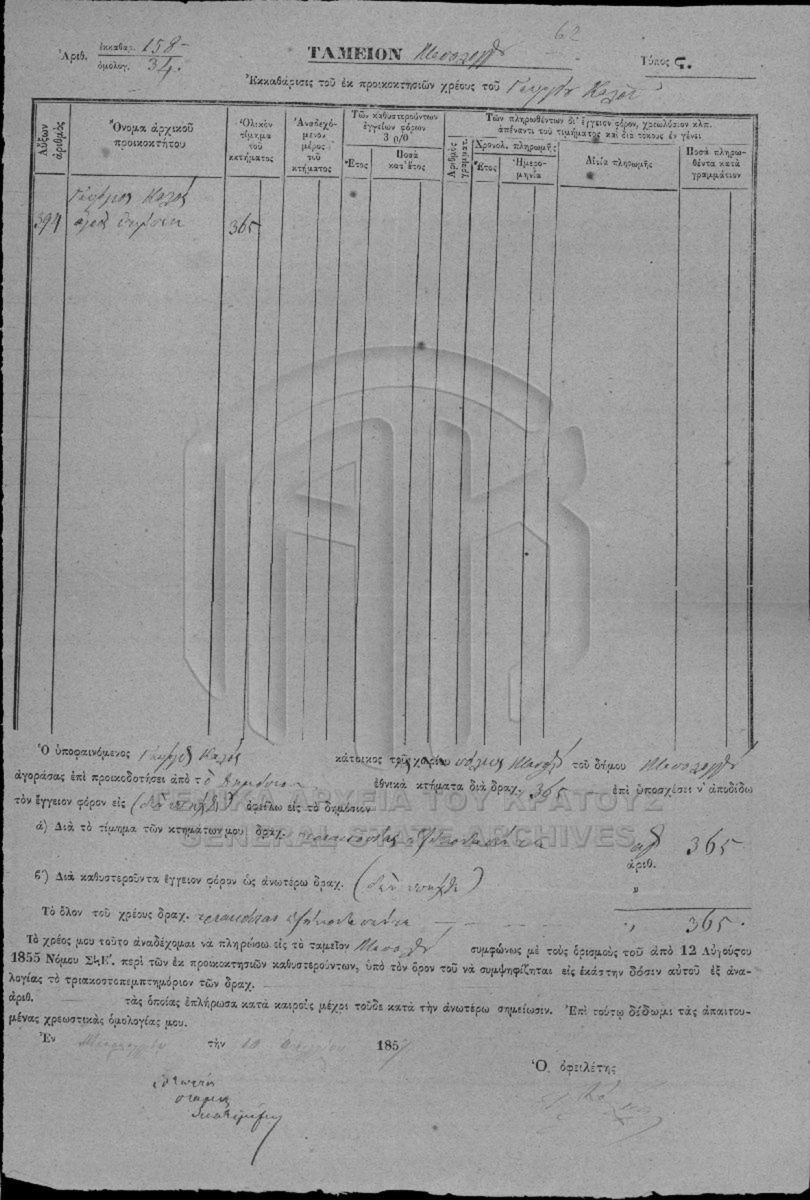 62
Ἀριθ. ἐκκαθαρ. 158
ὁμολογ. 34.
ΤΑΜΕΙΟΝ
Τύπος ς.
Ἐκκαθάρισις τοῦ ἐκ προικοκτησιῶν χρέους τοῦ Γεωργίου Καλοῦ
Αὔξων ἀριθμὸς
Ὄνομα ἀρχικοῦ προικοκτήτου
Ὁλικὸν τίμημα τοῦ κτήματος
Ἀναδεχόμενον μέρος τοῦ κτήματος
Τῶν καθυστερούντων ἐγγείων φόρων 3 ρ/0
Ἔτος
Ποσὰ κατ' ἔτος
Τῶν πληρωθέντων δι' ἔγγειον φόρον, χρεωλύσιον κλπ. ἀπέναντι τοῦ τιμήματος καὶ διὰ τόκους ἐν γένει
Ἀριθμὸς γραμματ.
Χρονολ. πληρωμῆς
Ἔτος
Ἡμερομηνία
Αἰτία πληρωμῆς
Ποσὰ πληρωθέντα κατὰ γραμμάτιον
Γεώργιος Καλός
394
365
Ὁ ὑποφαινόμενος Γεώργιος Καλός κάτοικος τοῦ χωρίου τοῦ δήμου
ἀγοράσας ἐπὶ προικοδοτήσει ἀπὸ τὸ δημόσιον ἐθνικὰ κτήματα διὰ δραχ. 365 ἐπὶ ὑποσχέσει ν' ἀποδίδω
τὸν ἔγγειον φόρον εἰς (δὲν ὑπῆρχε) ὀφείλω εἰς τὸ δημόσιον
ΓΕΝΙΚΑ ΑΡΧΕΙΑ ΤΟΥ ΚΡΑΤΟΥΣ
α) Διὰ τὸ τίμημα τῶν κτημάτων μου δραχ. τριακοσίας ἑξήκοντα πέντε ἀρ. 365
GENERAL STATE ARCHIVES
ἀριθ.
β') Διὰ καθυστεροῦντα ἔγγειον φόρον ὡς ἀνωτέρω δραχ. (δὲν ὑπῆρχε) »
Τὸ ὅλον τοῦ χρέους δραχ. τριακόσιαι ἑξήκοντα πέντε 365.
Τὸ χρέος μου τοῦτο ἀναδέχομαι νὰ πληρώσω εἰς τὸ ταμεῖον συμφώνως μὲ τοὺς ὁρισμοὺς τοῦ ἀπὸ 12 Αὐγούστου
1855 Νόμου ΣΛΕ'. περὶ τῶν ἐκ προικοκτησιῶν καθυστερούντων, ὑπὸ τὸν ὅρον τοῦ νὰ συμψηφίζηται εἰς ἑκάστην δόσιν αὐτοῦ ἐξ ἀνα-
λογίας τὸ τριακοστοπεμπτημόριον τῶν δραχ.
ἀριθ. τὰς ὁποίας ἐπλήρωσα κατὰ καιροὺς μέχρι τοῦδε κατὰ τὴν ἀνωτέρω σημείωσιν. Ἐπὶ τούτῳ δίδωμι τὰς ἀπαιτου-
μένας χρεωστικὰς ὁμολογίας μου.
Ἐν τὴν 185
Ὁ ὀφειλέτης